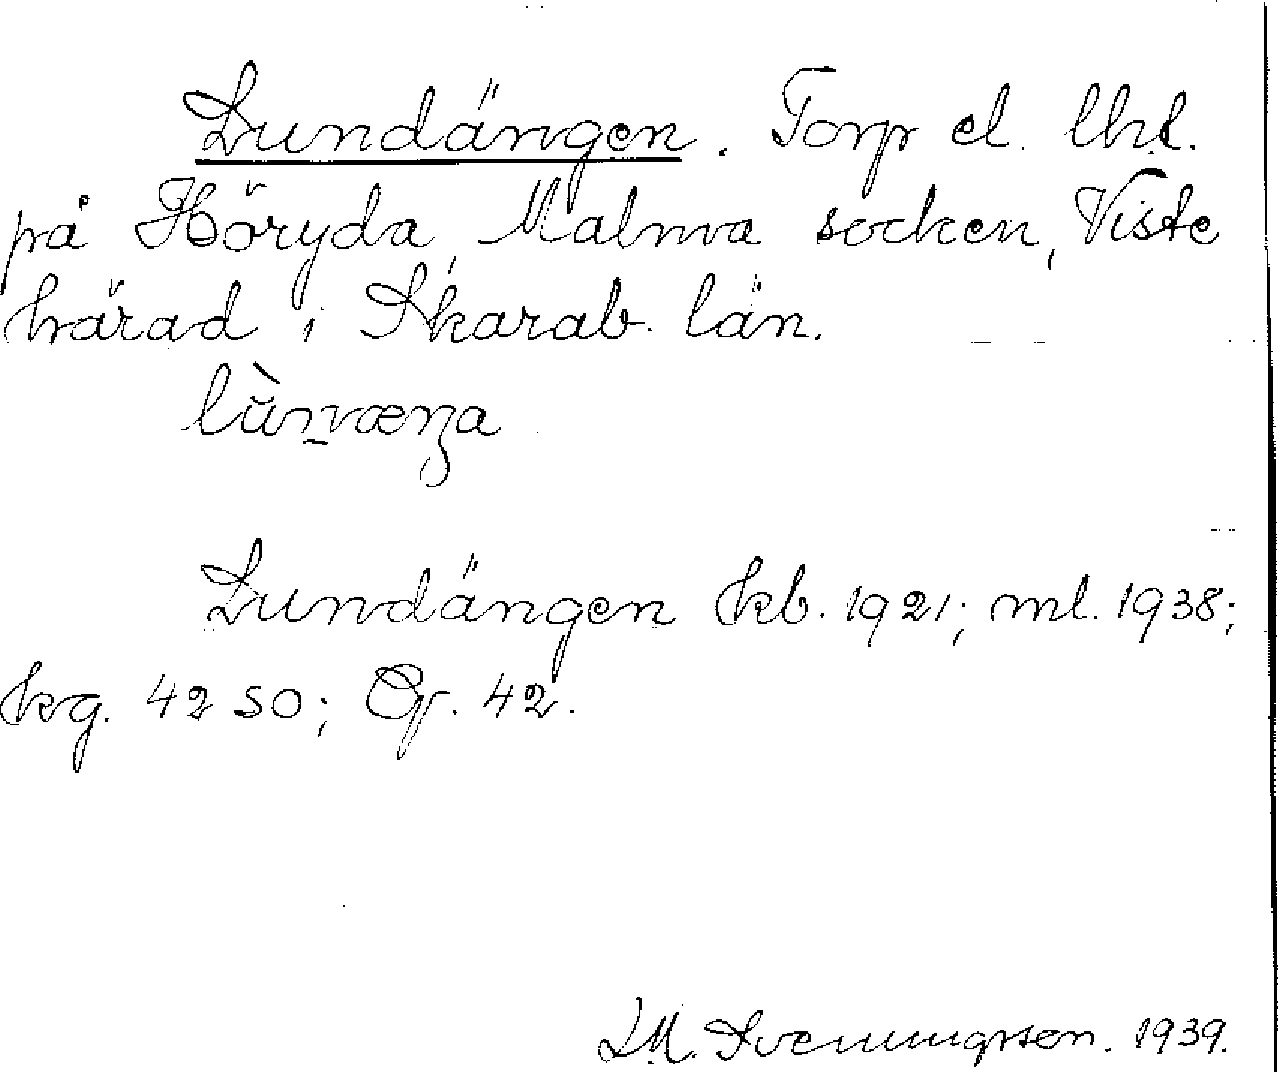 Lundängen. Torp el. lht.
på Höryda, Malma socken, Viste
härad i Skarab. län.
Lundängen kb. 1921; ml. 1938;
krg. 42 SO; Op. 42.
LM. Svenungsson. 1939.